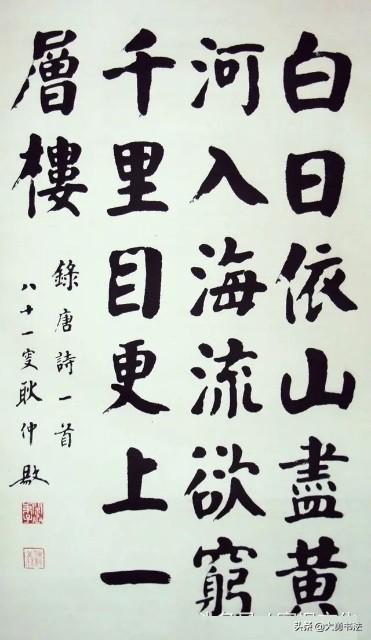 白日依山盡黃
河入海流欲窮
千里目更上一
層樓
錄唐詩一首
八十一叟耿仲敭
头条@大勇书法